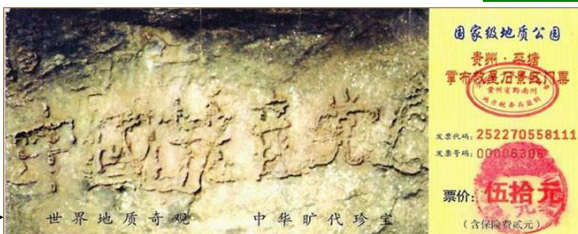 中國共產党
世界地质奇观 中华旷代珍宝
国家级地质公园
贵州·平塘
掌布救星石景区门票
贵州省黔南州
发票代码：252270558111
发票号码：00006306
票价：伍拾元
（含保险费贰元）